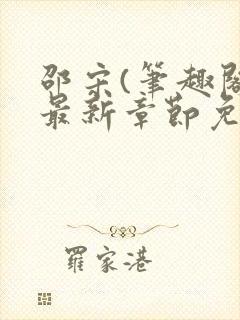 邵宋(筆趣閣
最新章節免
羅家港